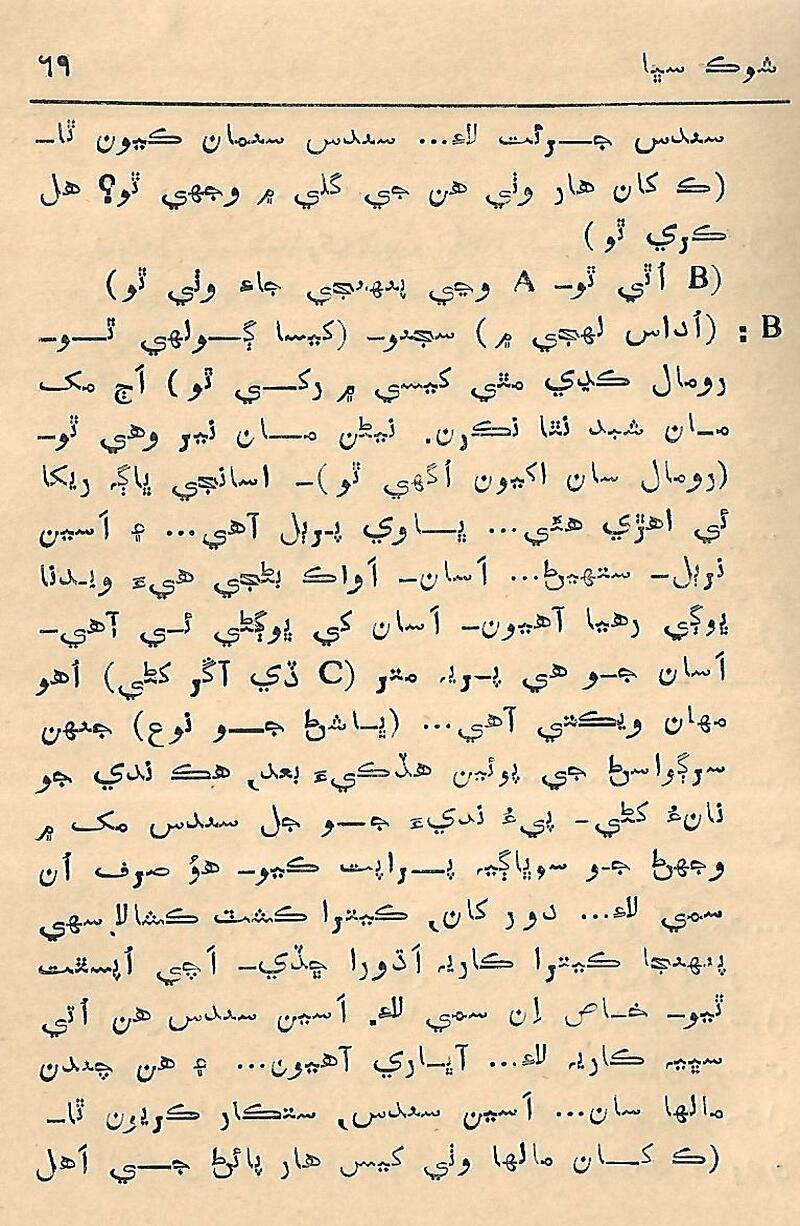 شوڪ سڀا ٦٩
سندس جـــرئت لاءِ... سندس سنمان ڪيون ٿا۔
(ڪ کان هار وٺي هن جي ڳلي ۾ وجهي ٿو؟ هل
ڪري ٿو)
(B اُٿي ٿو۔ A وڃي پنهنجي جاءِ وٺي ٿو)
B : (اُداس لهجي ۾) سڄڻو۔ (کيسا ڳـــولهي ٿـــو۔
رومال ڪڍي مٿي کيسي ۾ رکـــي ٿو) اَڄ مک
مـان شبد نٿا نڪرن. نيڻن مـــان نير وهي ٿو۔
(رومال سان اکيون اُگهي ٿو)۔ اسانجي ڀاڳہ ريکا
ئي اهڙي هئي... ڀـــاوي پـربل آهي... ۽ اَسين
نربل۔ ستهيڻ... اَسان۔ اَواڪ بڻجي هيءَ ويـدنا
ڀوڳي رهيا آهيون۔ اَسان کي ڀوڳڻي ئـي آهي۔
اَسان جـو هي پـريہ متر (C ڏي آڱر کڻي) اُهو
مهان ويڪتي آهي... (ڀـاشڻ جـــو نوع) جنهن
سرڳواسڻ جي پوئين هڏڪيءَ بعد، هڪ ندي جو
نانءُ کڻي۔ پيءُ نديءَ جـــو جل سندس مک ۾
وجهڻ جـو سوڀاڳيہ پـــراپت ڪيو۔ هوُ صرف اُن
سمي لاءِ... دور کان، ڪيترا ڪشٽ ڪشالا سهي
پنهنجا ڪيترا ڪاريہ اَڌورا ڇڏي۔ اَچي اُپسٿت
ٿيو۔ خـاص اِن سمي لاءِ. اَسين سندس هن اُتي
سڀيہ ڪاريہ لاءِ... آڀـاري آهيون... ۽ هن چندن
مالها سان... اَسين سندس، ستڪار ڪريون ٿا۔
(ڪ کـــان مالها وٺي کيس هار پائڻ جـــي اَهل